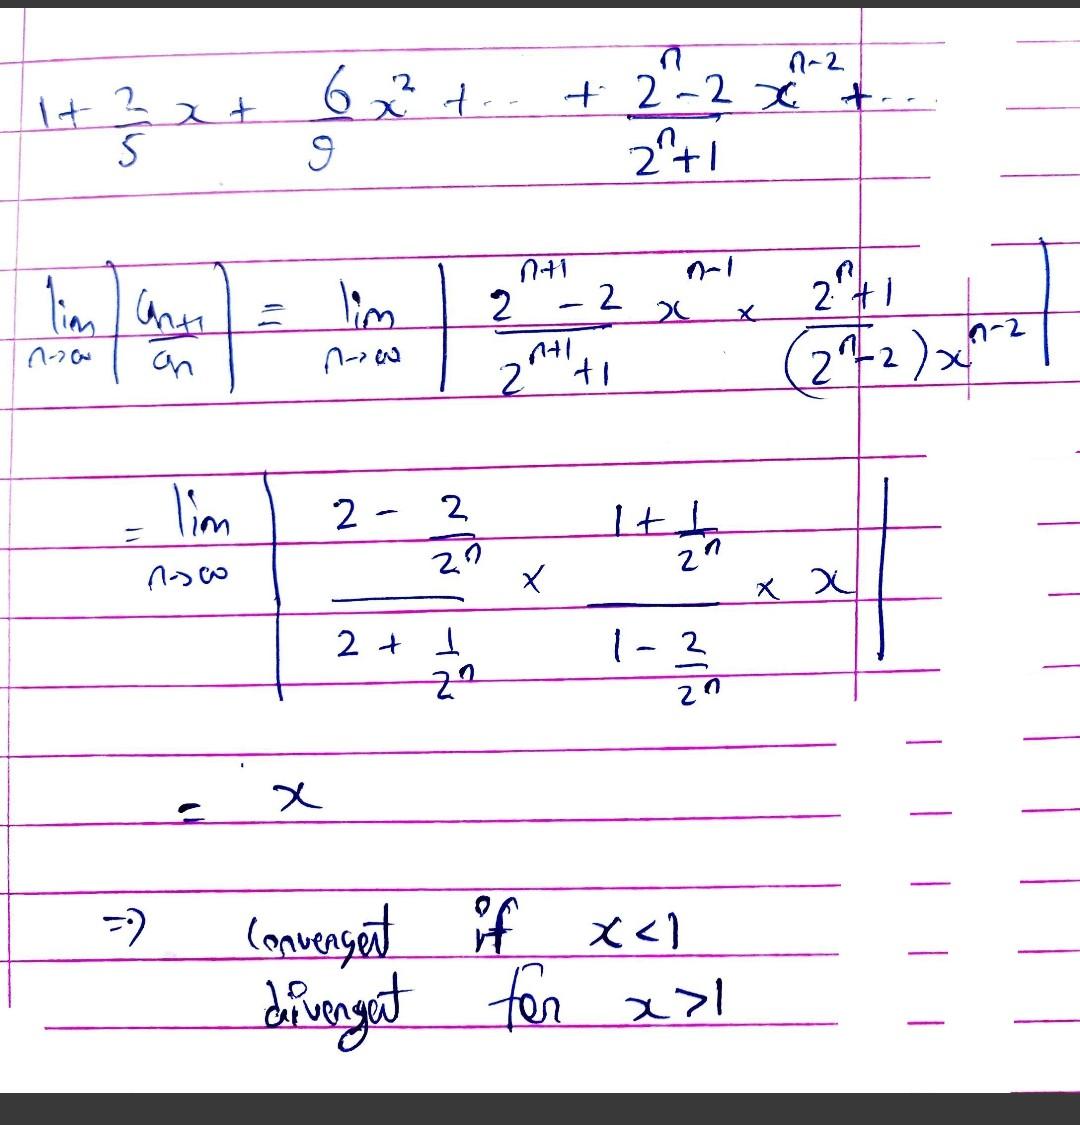 1 + 2/5 x + 6/9 x² + ... + (2ⁿ-2)/(2ⁿ+1) xⁿ⁻² + ...
lim n→∞ |aₙ₊₁/aₙ| = lim n→∞ | (2ⁿ⁺¹-2)/(2ⁿ⁺¹+1) xⁿ⁻¹ × (2ⁿ+1)/((2ⁿ-2)xⁿ⁻²) |
= lim n→∞ | (2 - 2/2ⁿ)/(2 + 1/2ⁿ) × (1 + 1/2ⁿ)/(1 - 2/2ⁿ) × x |
= x
=> Convergent if x<1
divergent for x>1